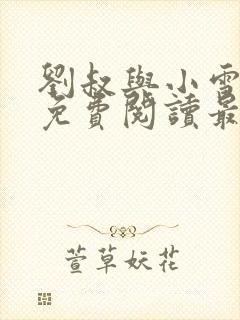 劉叔與小雪
免費閱讀最
萱草妖花